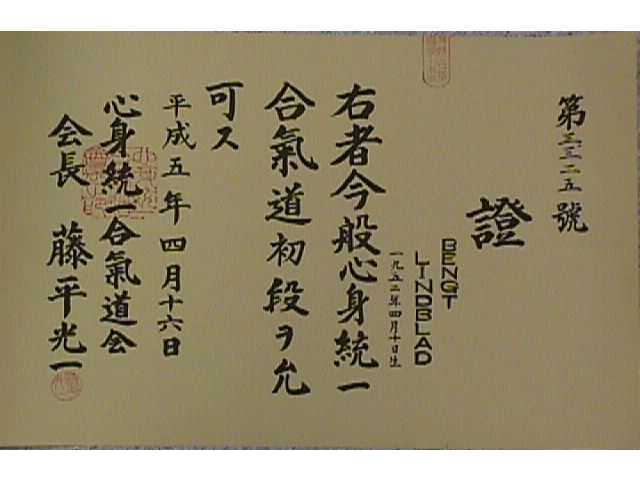 第三三二五號
證
BENGT
LINDBLAD
一九五二年四月十日生
右者今般心身統一
合氣道初段ヲ允
可ス
平成五年四月十六日
心身統一合氣道会
会長 藤平光一